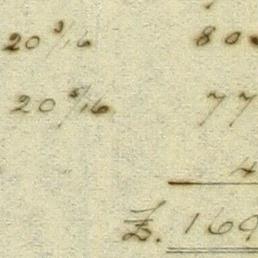 20 3/16 80
20 5/16 77
4
£. 169